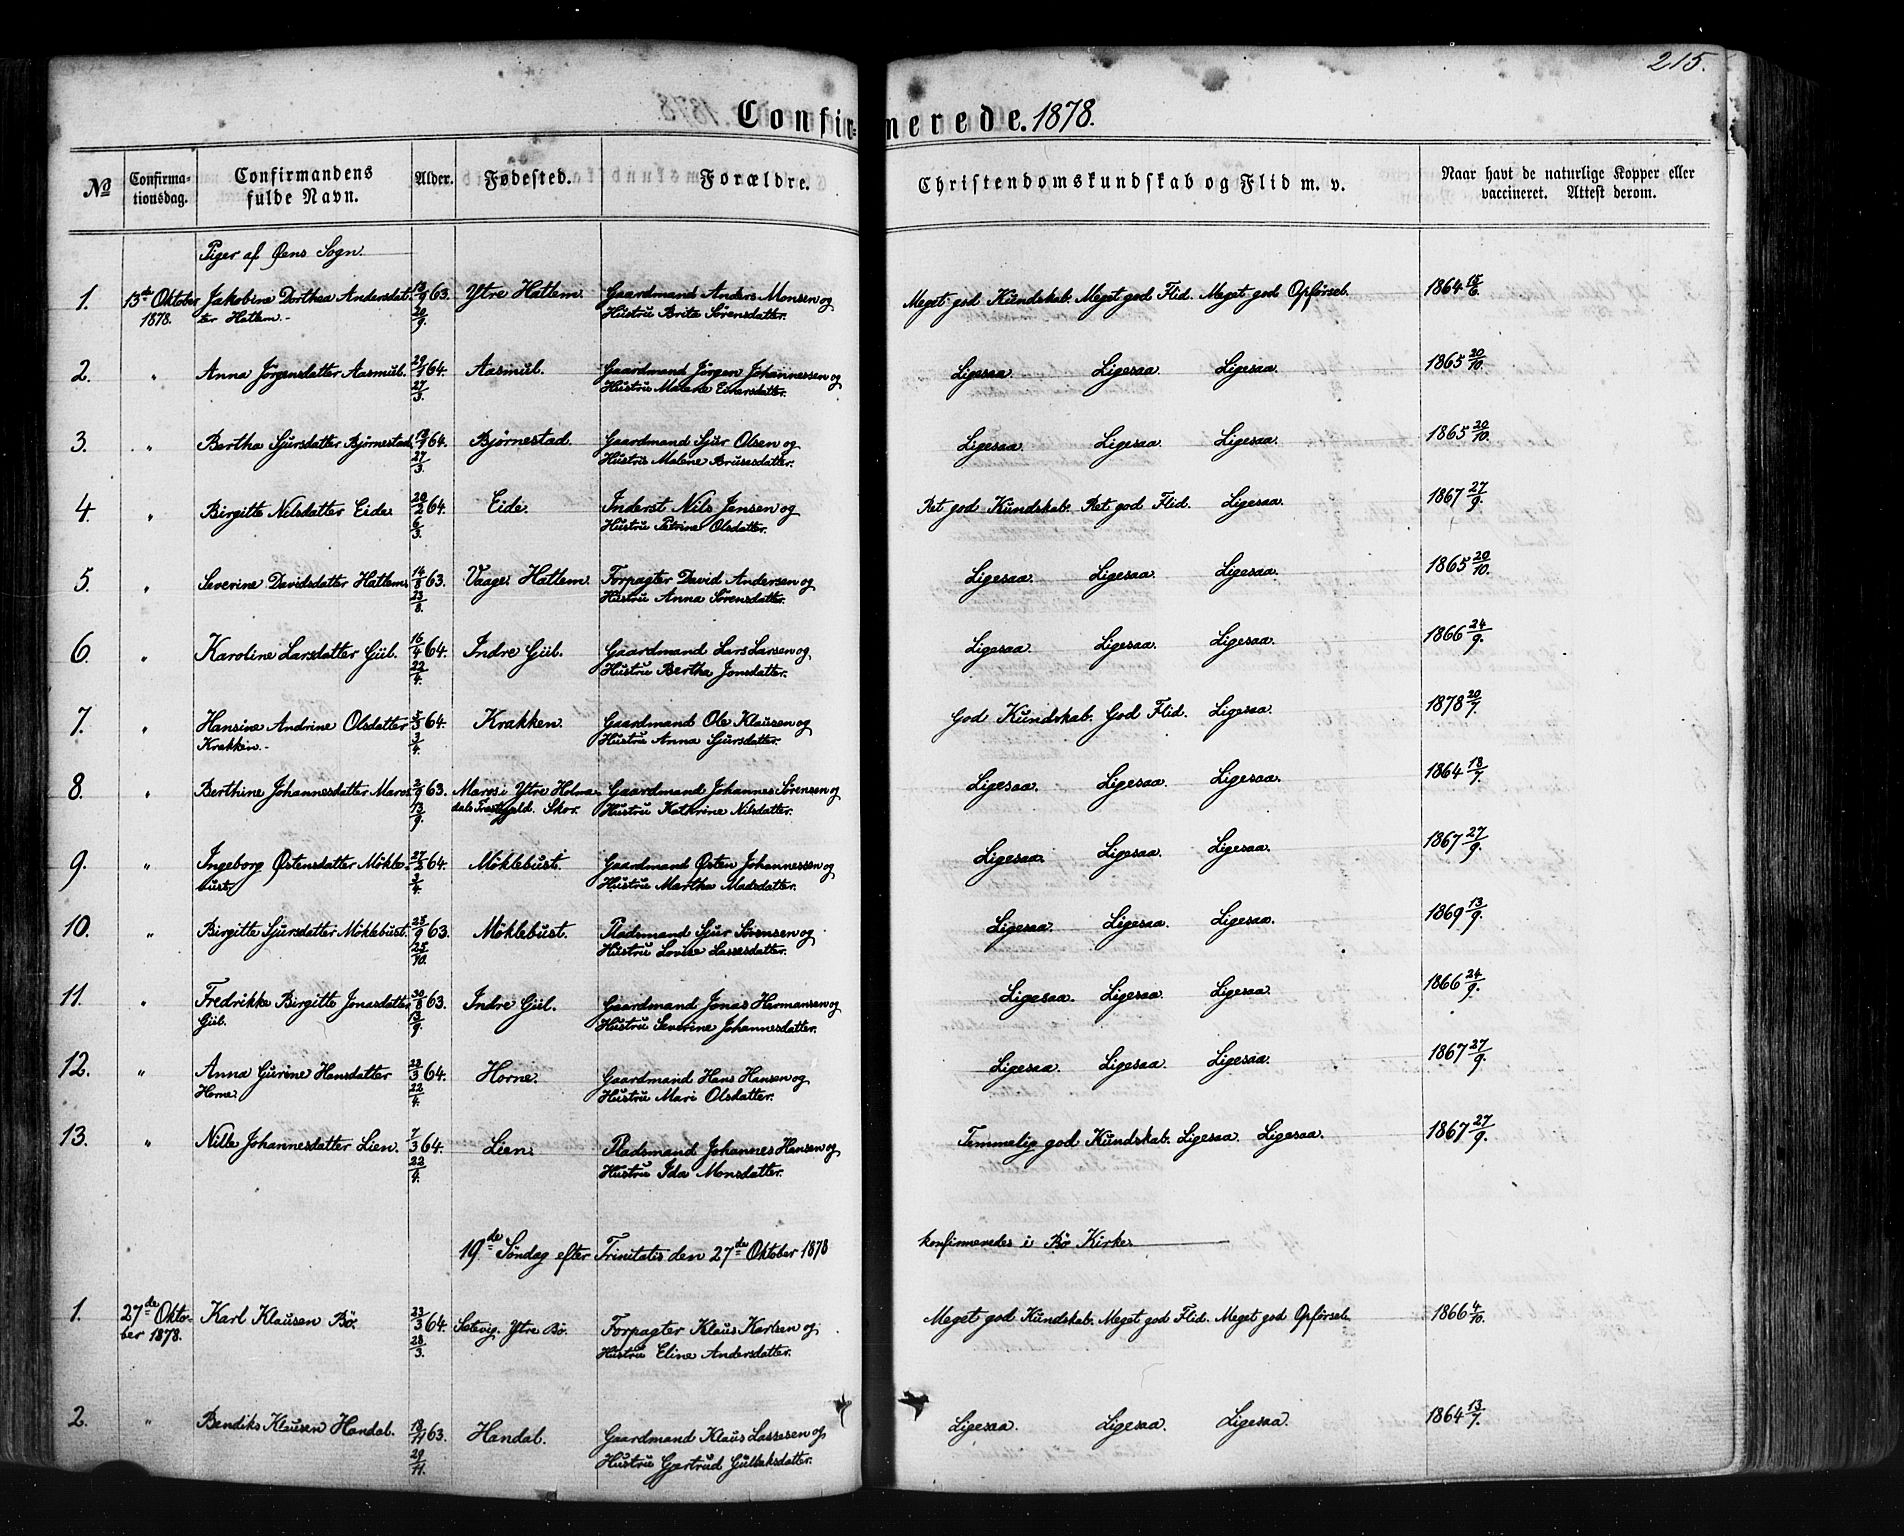 215.
Confir=merede. 1878.
No Confirmationsdag. Confirmandens fulde Navn. Alder. Fødested. Forældre. Christendomskundskab og Flid m. v. Naar havt de naturlige Kopper eller vaccineret. Attest derom.
Piger af Øens Sogn.
1. 13de Oktober Jakobine Dorthea Andersdat- 13/9 63. Ytre Hatlem. Gaardmand Anders Monsen og Meget god Kundskab. Meget god Flid. Meget god Opførsel. 1864 15/6.
1878. ter Hatlem.- 20/9. Hustru Brite Sørensdatter.
2. " Anna Jørgensdatter Aasmul. 29/1 64. Aasmul. Gaardmand Jørgen Johannessen og Ligesaa. Ligesaa. Ligesaa. 1865 20/10.
27/3. Hustru Malene Einersdatter.
3. " Bertha Sjursdatter Bjørnestad. 64. Bjørnestad. Gaardmand Sjur Olsen og Ligesaa. Ligesaa. Ligesaa. 1865 20/10.
27/3. Hustru Malene Brusesdatter.
4. " Birgitte Nilsdatter Eide. 20/2 64. Eide. Inderst Nils Jensen og Ret god Kundskab. Ret god Flid. Ligesaa. 1867 27/9.
6/3. Hustru Petrine Olsdatter.
5. " Severine Davidsdatter Hatlem. 14/8 63. Vaage. Hatlem. Forpagter David Andersen og Ligesaa. Ligesaa. Ligesaa. 1865 20/10.
23/8. Hustru Anna Sørensdatter.
6. " Karoline Larsdatter Giil. 16/4 64. Indre Giil. Gaardmand Lars Larsen og Ligesaa. Ligesaa. Ligesaa. 1866 24/9.
22/4. Hustru Bertha Jonsdatter.
7. " Hansine Andrine Olsdatter 5/3 64. Krakken. Gaardmand Ole Klausen og God Kundskab. God Flid. Ligesaa. 1878 20/7.
Krakken.- 3/4. Hustru Anna Sjursdatter.
8. " Berthine Johannesdatter Mares. 2/9 63. Mares i Ytre Holme- Gaardmand Johannes Sørensen og Ligesaa. Ligesaa. Ligesaa. 1864 13/7.
13/9. dals Præstegjeld. Skor. Hustru Kathrine Nilsdatter.
9. " Ingeborg Østensdatter Møkle- 27/2 64. Møklebust. Gaardmand Østen Johannessen og Ligesaa. Ligesaa. Ligesaa. 1867 27/9.
bust. 3/4. Hustru Martha Madsdatter.
10. " Birgitte Sjursdatter Møklebust. 25/9 63. Møklebust. Pladsmand Sjur Sørensen og Ligesaa. Ligesaa. Ligesaa. 1869 13/9.
25/10. Hustru Lovise Lassesdatter.
11. " Fredrikke Birgitte Jonasdatter 30/8 63. Indre Giil. Gaardmand Jonas Hermansen og Ligesaa. Ligesaa. Ligesaa. 1866 24/9.
Giil. 13/9. Hustru Severine Johannesdatter.
12. " Anna Gurine Hansdatter 23/3 64. Horne. Gaardmand Hans Hansen og Ligesaa. Ligesaa. Ligesaa. 1867 27/9.
Horne. 22/4. Hustru Mari Olsdatter.
13. " Nille Johannesdatter Lien. 7/3 64. Lien. Pladsmand Johannes Hansen og Temmelig god Kundskab. Ligesaa. Ligesaa. 1867 27/9.
22/4. Hustru Ida Monsdatter.
19de Søndag efter Trinitatis den 27de Oktober 1878 konfirmeredes i Bø Kirke.
1. 27de Okto- Karl Klausen Bø. 23/3 64. Setevig. Ytre Bø. Forpagter Klaus Karlsen og Meget god Kundskab. Meget god Flid. Meget god Opførsel. 1866 4/10.
ber 1878. 28/3. Hustru Eline Andersdatter.
2. " Bendiks Klausen Handal. 18/11 63. Handal. Gaardmand Klaus Lassesen og Ligesaa. Ligesaa. Ligesaa. 1864 13/7.
29/11. Hustru Gjertrud Gulleksdatter.